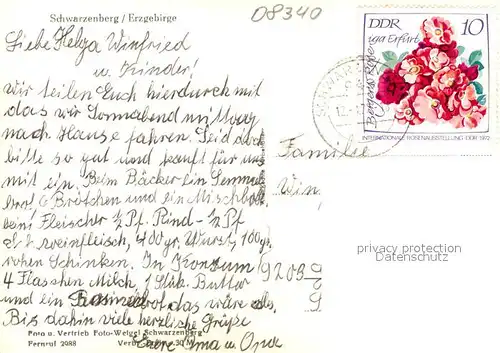 Schwarzenberg / Erzgebirge
08340
Liebe Helga Winfried
u. Kinder!
Wir teilen Euch hierdurch mit
das wir Sonnabend mittag
nach Hause fahren. Seid doch
bitte so gut und kauft für uns
mit ein. Beim Bäcker ein
brot 6 Brötchen und ein Mischbrot
beim Fleischer 1/2 Pf. Rind - 1/2 Pf
Schweinfleisch, 400 gr. Wurst, 100 gr.
rohen Schinken. In Konsum
4 Flasshen Milch, 1 Stük. Butter
und ein das wäre es.
Bis dahin viele herzliche Grüße
Eure Oma u. Opa
Foto u. Vertrieb Foto-Weigel Schwarzenberg
Fernruf 2988
DDR
10
INTERNATIONALE ROSENAUSSTELLUNG DDR 1972
iga Erfurt
Familie
Win
9203
privacy protection
Datenschutz